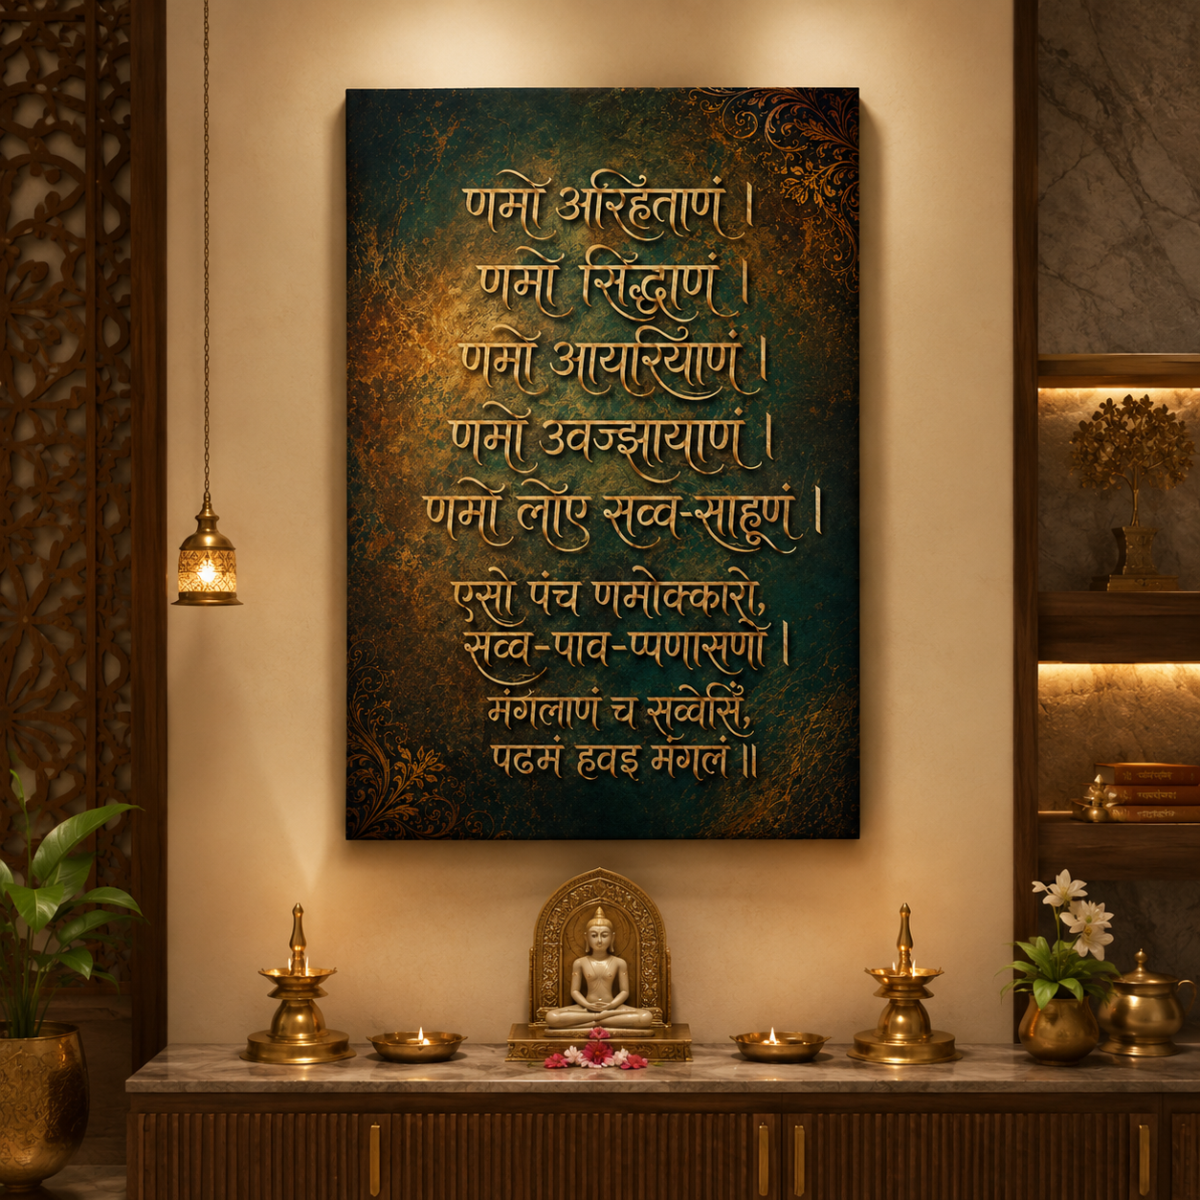 णमो अरिहंताणं ।
णमो सिद्धाणं ।
णमो आयरियाणं ।
णमो उवज्झायाणं ।
णमो लोए सव्व-साहूणं ।
एसो पंच णमोक्कारो,
सव्व-पाव-प्पणासणो ।
मंगलाणं च सव्वेसिं,
पढमं हवइ मंगलं ॥